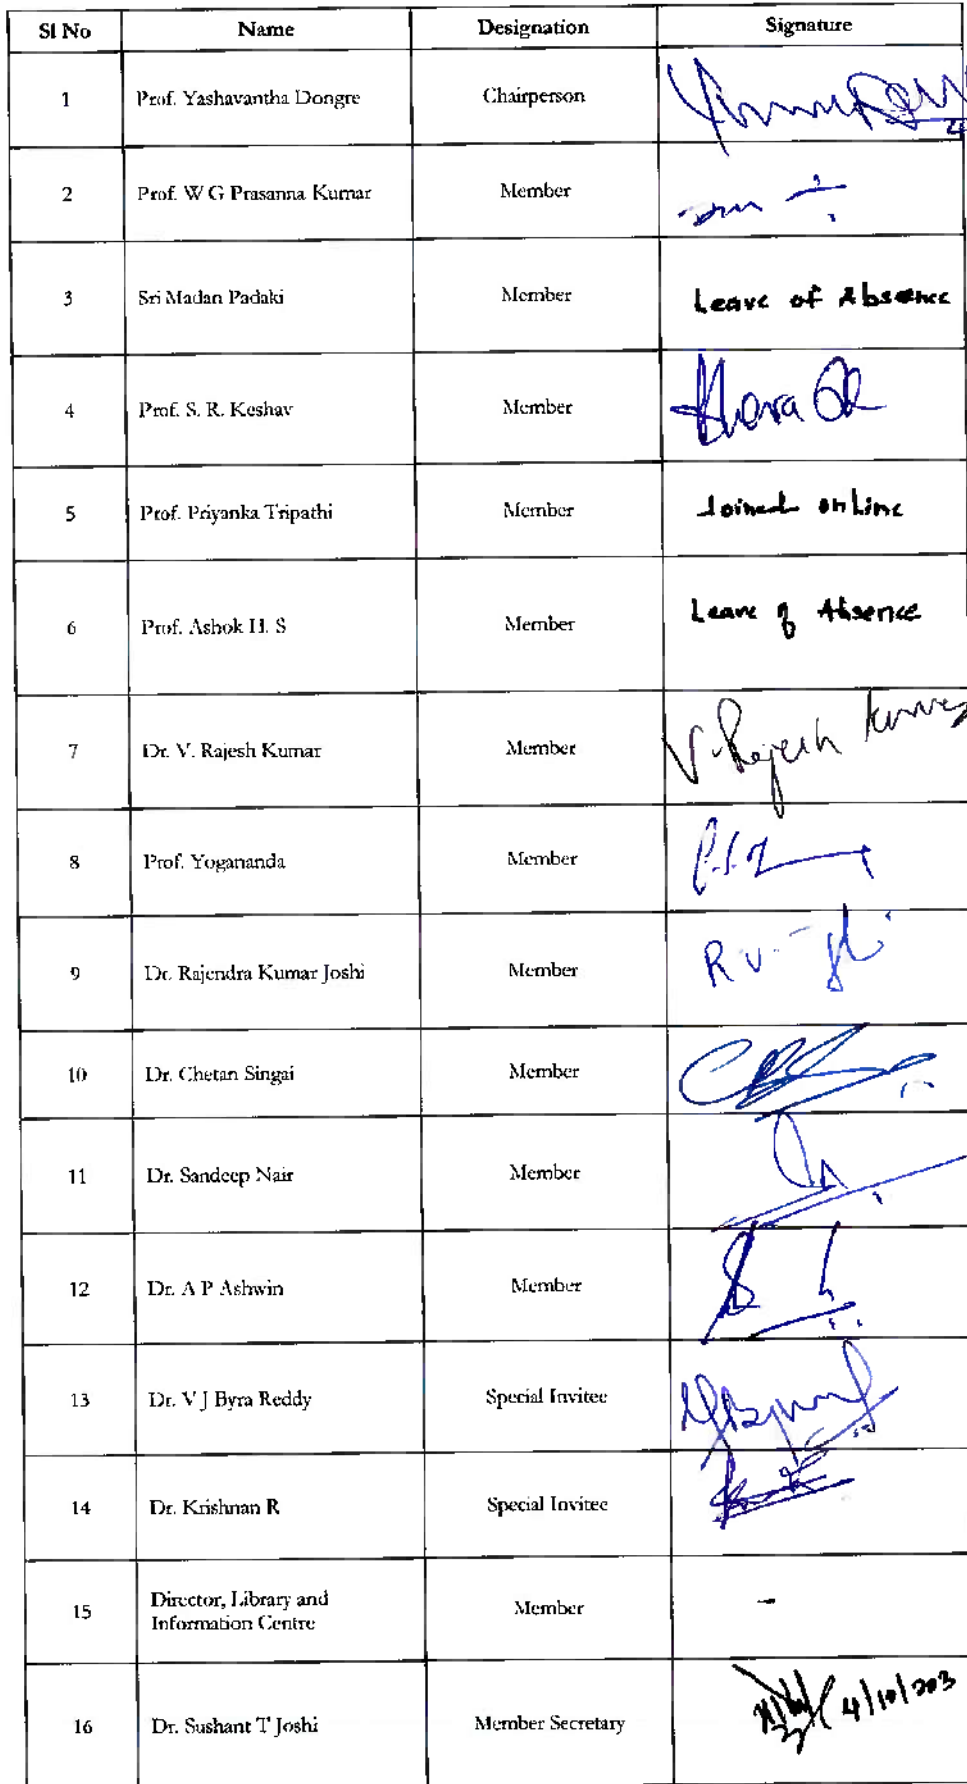 Sl No Name Designation Signature
1 Prof. Yashavantha Dongre Chairperson
2 Prof. W G Prasanna Kumar Member
3 Sri Madan Padaki Member Leave of Absence
4 Prof. S. R. Keshav Member
5 Prof. Priyanka Tripathi Member Joined online
6 Prof. Ashok H. S Member Leave of Absence
7 Dr. V. Rajesh Kumar Member V. Rajesh Kumar
8 Prof. Yogananda Member
9 Dr. Rajendra Kumar Joshi Member
10 Dr. Chetan Singai Member
11 Dr. Sandeep Nair Member
12 Dr. A P Ashwin Member
13 Dr. V J Byra Reddy Special Invitee
14 Dr. Krishnan R Special Invitee
15 Director, Library and
Information Centre Member -
16 Dr. Sushant T Joshi Member Secretary